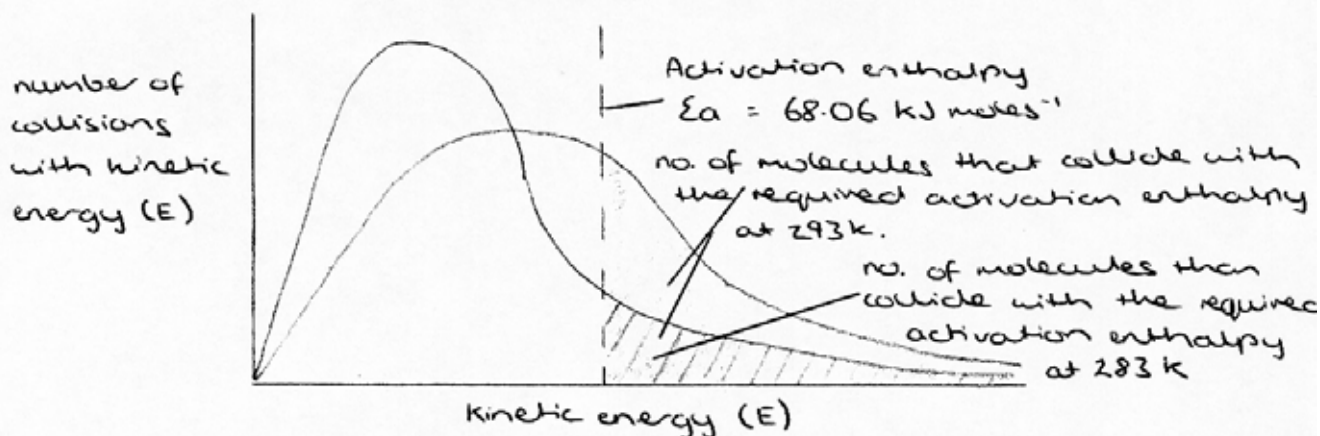 number of
collisions
with kinetic
energy (E)
Activation enthalpy
Ea = 68.06 kJ moles⁻¹
no. of molecules that collide with
the required activation enthalpy
at 293k.
no. of molecules than
collide with the required
activation enthalpy
at 283k
Kinetic energy (E)